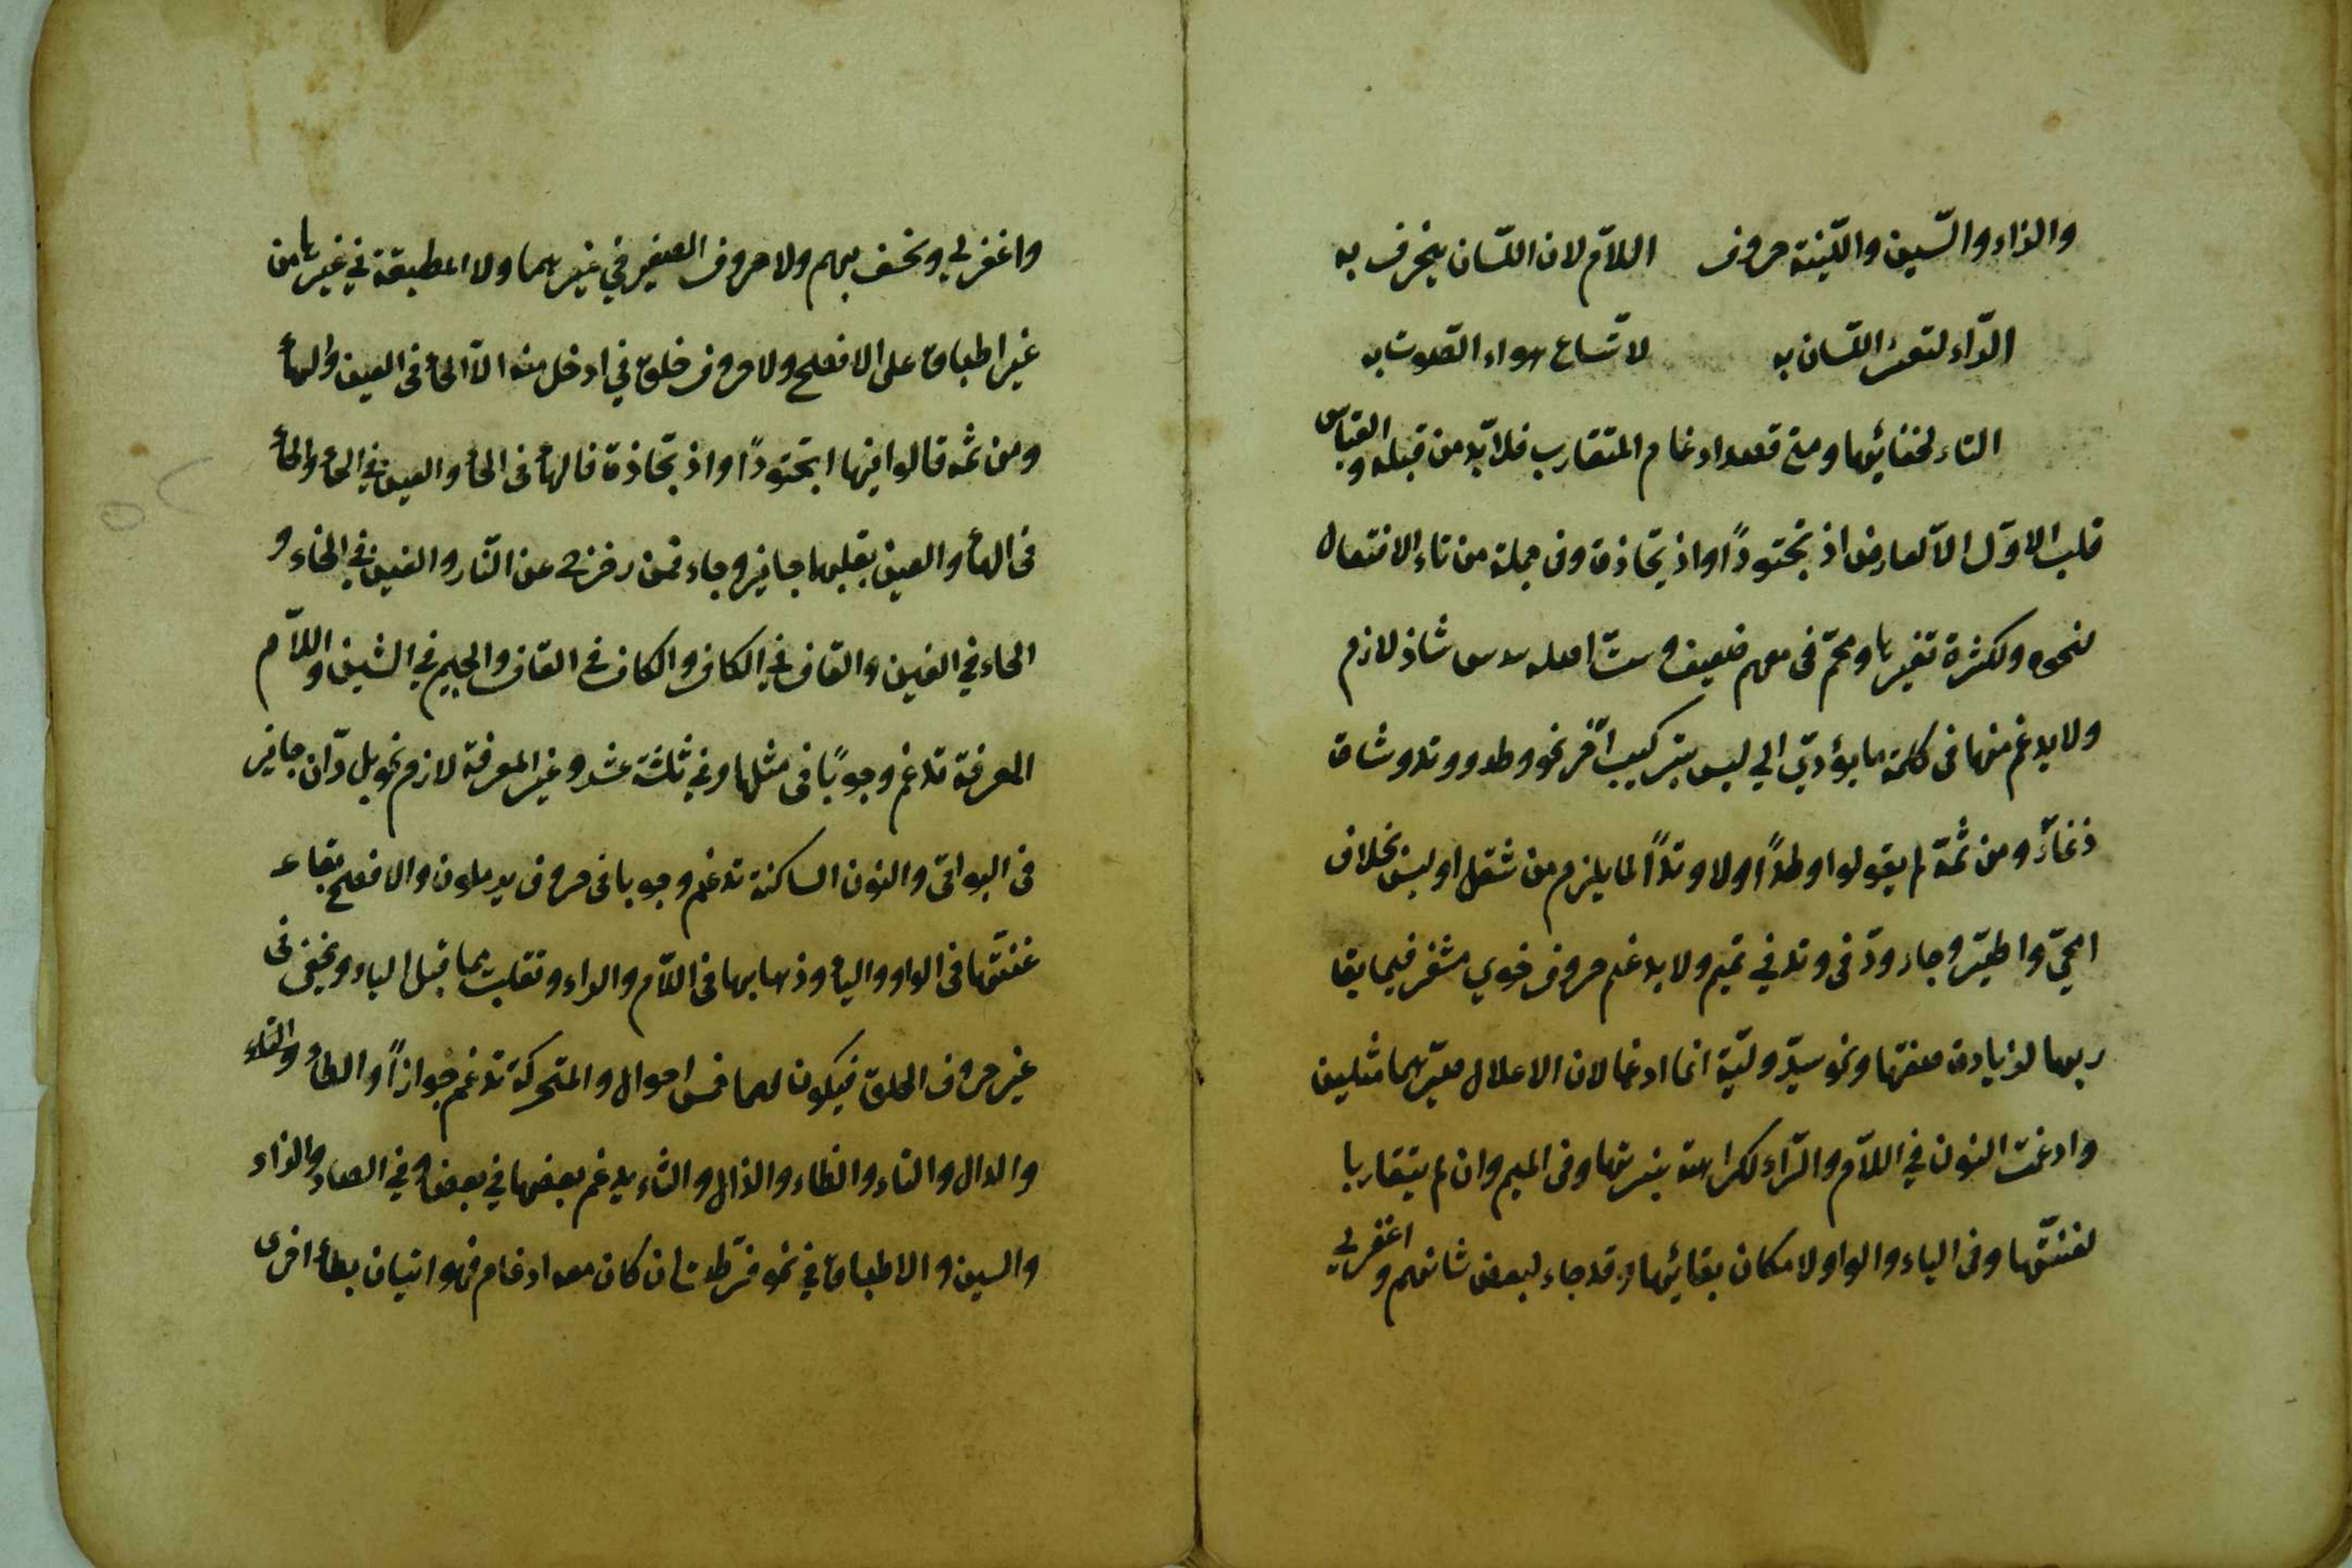 والزاء والسّين واللّينة حروف اللاّم لان اللسّان ينحرف به
الرّاء لتعثر اللسّان به لاتّساع هواء الصّوت به
التاء لخفائها ومتى قصد ادغام المتقارب فلا بّد من قبله والقياس
قلب الاوّل الاّ لعارض اذبحتودًا واذبحّاذة وفى جملة من تاء الافتعال
لنحوه ولكثرة تغيرها ومحّم فى معهم ضعيف وستّ اصله سدس شاذ لازم
ولا يدغم منها فى كلمة ما يؤدّي الي لبس بتركيب آخر نحو وطد ووتد وشاة
زنماء ومن ثمّة لم يقولوا وطدًا ولا وتدًا لما يلزم من ثقل او لبس بخلاف
امّحي واطيّر وجاء ودّ فى وتد في تميم ولا يدغم حروف ضوي مشفر فيما يقا
ربها لزيادة صفتها ونحو سيّد وليّة انما ادغما لان الاعلال صيّرهما مثلين
وادغمت النون في اللاّم والرّاء لكراهة نبرتها وفى الميم وان لم يتقاربا
لغنتّها وفى الياء والواو لامكان بقائها وقد جاء لبعض شانهم واغفر لي
واغفر لي ونخسف بهم ولا حروف الصفير في غيرهما ولا المطبقة في غيرها من
غير اطباق على الافصح ولا حروف حلق في ادخل منه الاّ الحاء فى العين والهاء
ومن ثمّه قالوا فيها اذبحتودًا واذبحّاذة فالهاء فى الحاء والعين في الحاء والحاء
فى الهاء والعين بقلبهما جايز وجاء فمن زحزح عن النّار والغين في الخاء و
الخاء في الغين والقاف في الكاف والكاف فى القاف والجيم في الشين واللاّم
المعرفة تدغم وجوبًا فى مثلها وفي ثلثة عشر وغير المعرفة لازم نحو بل رّان جايز
فى البواقى والنون الساكنة تدغم وجوبا فى حروف يرملون والافصح بقاء
غنتّها فى الواو والياء وذهابها فى اللاّم والراء وتقلب ميما قبل الباء وتخفى فى
غير حروف الحلق فيكون لها خمس احوال والمتحركة تدغم جوازًا والطاء والتاء
والدال والتاء والظاء والذال والثاء يدغم بعضها في بعض وفي الصاد والزاء
والسين والاطباق في نحو فرّطت ان كان معه ادغام فهو اتيان بطاء اخرى